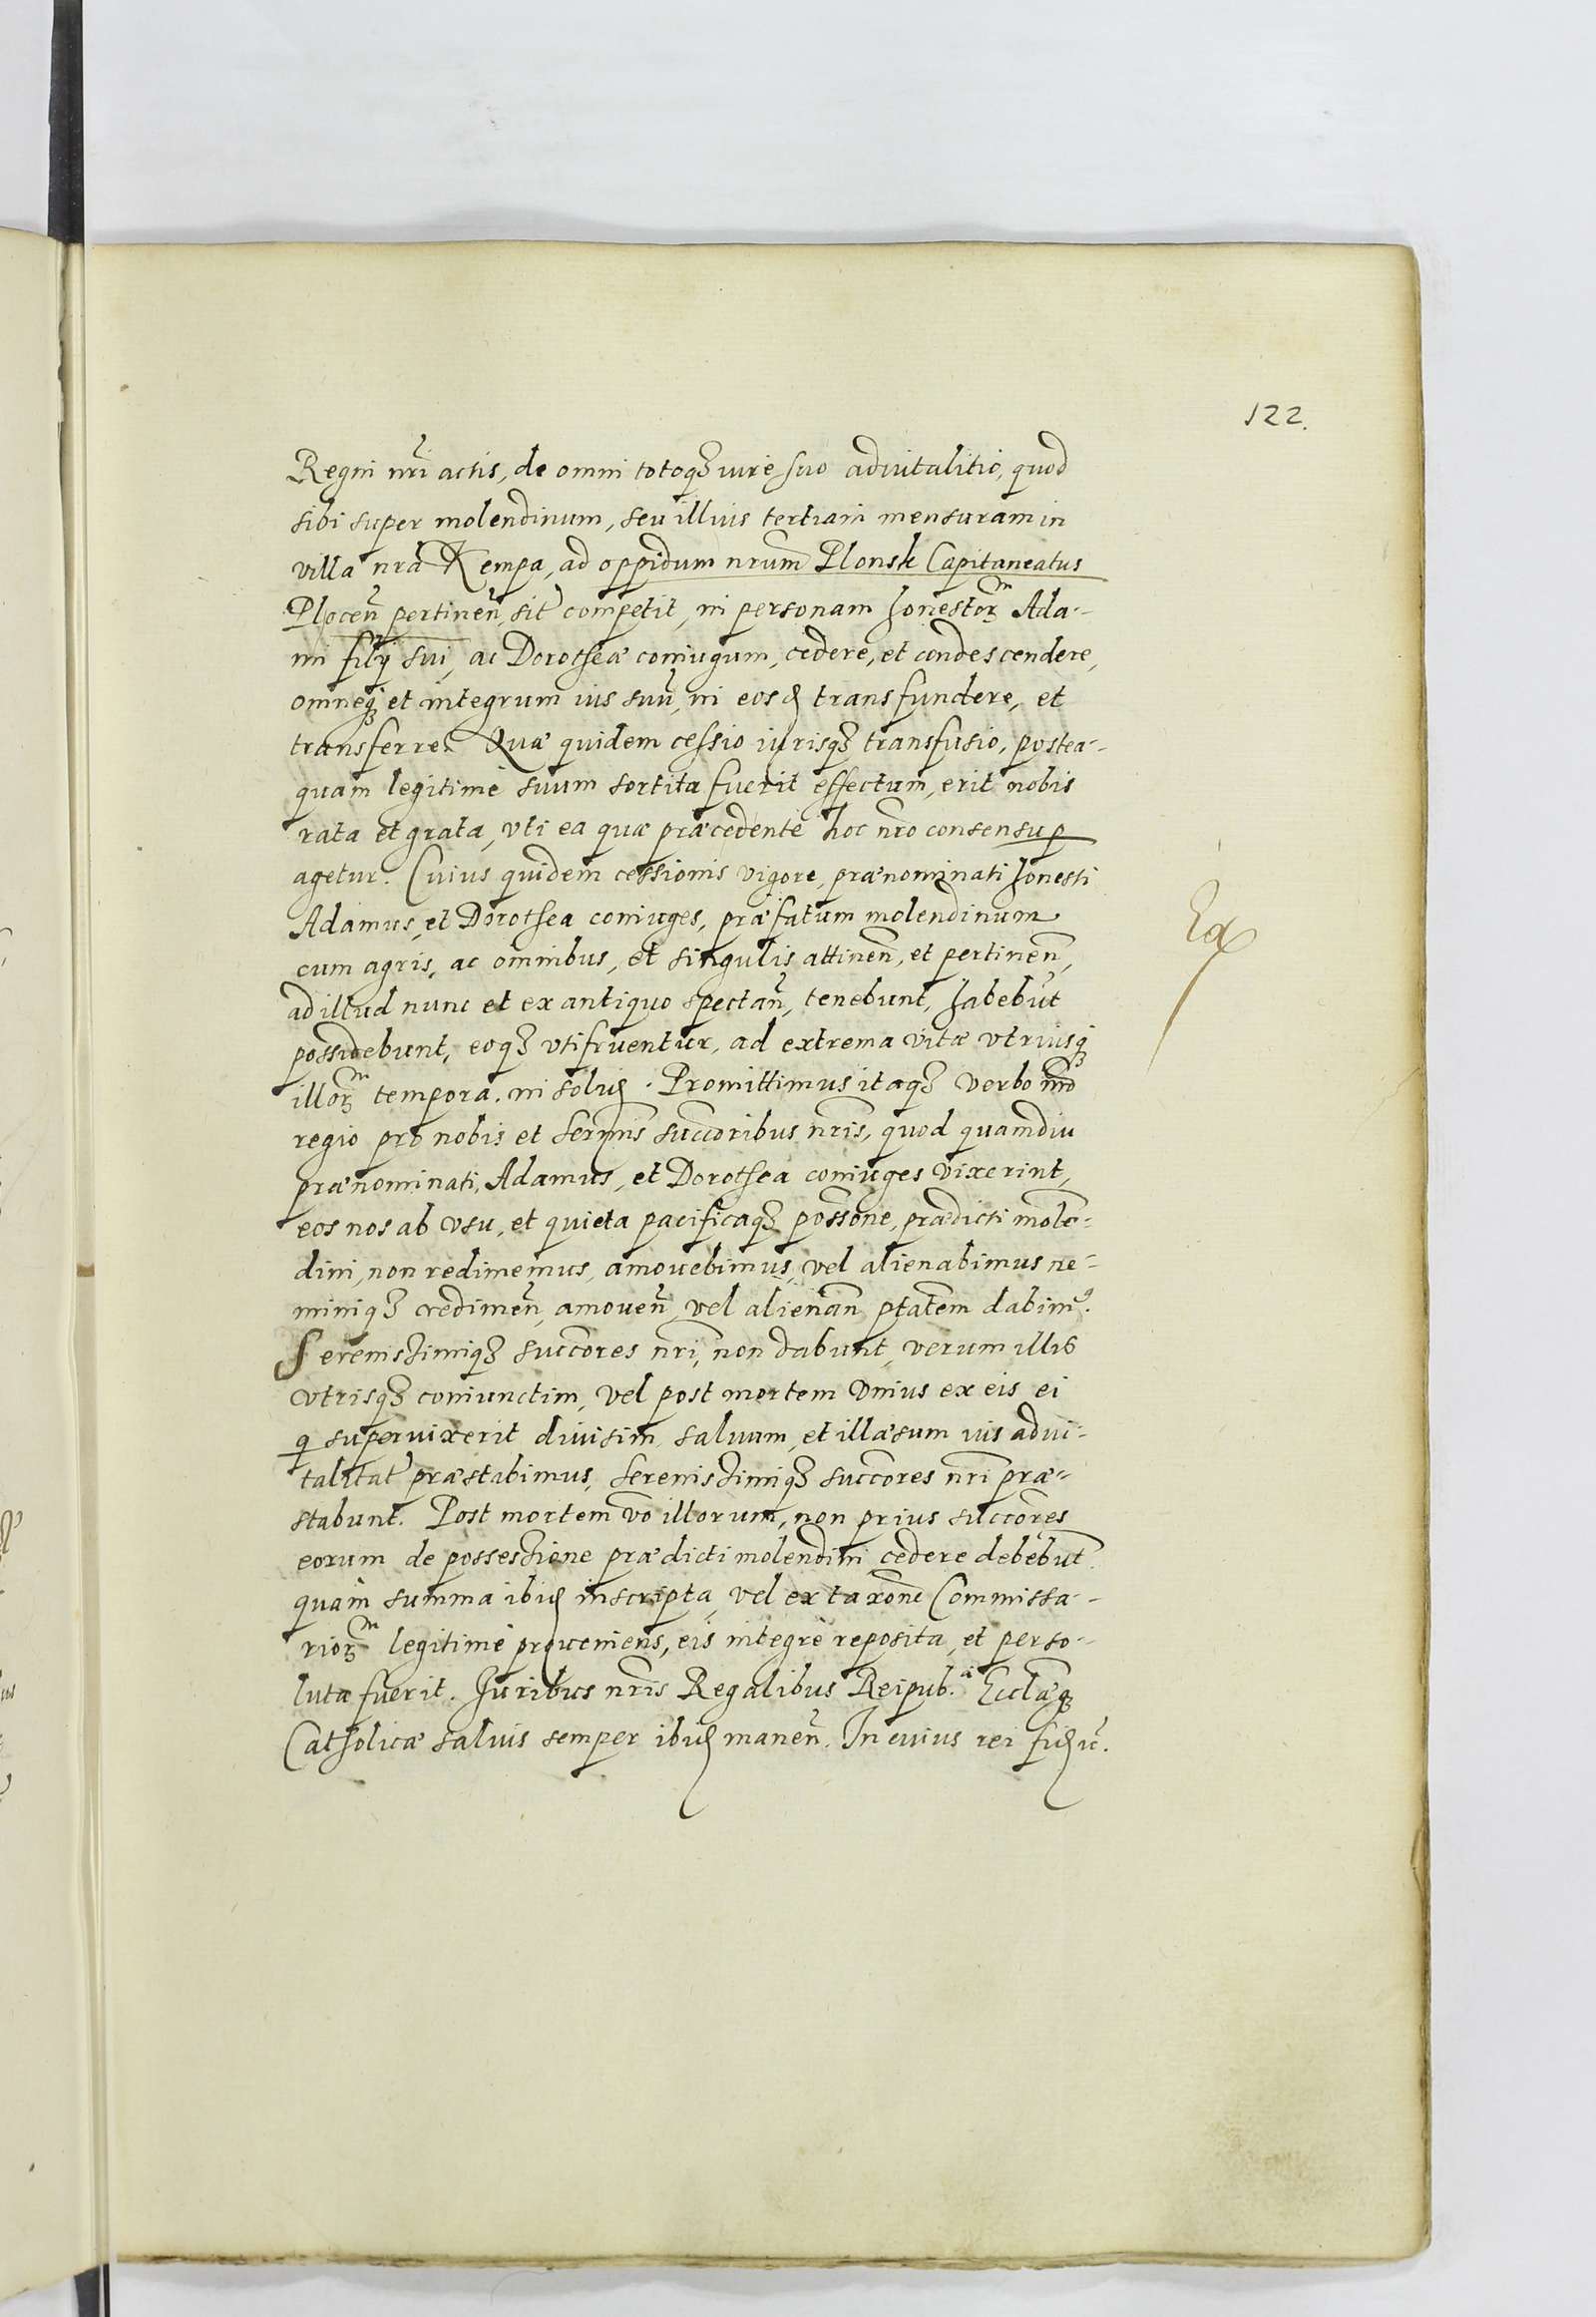 122.
Regni nr̃i actis, de omni totoqꝫ iure suo aduitalitio, quod
sibi super molendinum, seu illius tertiam mensuram in
villa nrã Kempa, ad oppidum nrũm Plonsk Capitaneatus
Plocen̄ pertinen̄, sit competit, in personam honestorꝫm Ada-
mi filij sui, ac Dorotheæ coniugum, cedere, et condescendere,
omneqꝫ et integrum ius suū, in eosd transfundere, et
transferre. Quæ quidem cessio iurisqꝫ transfusio, postea-
quam legitimè suum sortita fuerit effectum, erit nobis
rata et grata, vti ea quæ præcedente hoc nr̃o consensu p
agetur. Cuius quidem cessionis vigore, prænominati honesti
Adamus, et Dorothea coniuges, præfatum molendinum
cum agris, ac omnibus, et singulis attinen̄, et pertinen̄,
ad illud nunc et ex antiquo spectan̄, tenebunt, habebūt
possidebunt, eoqꝫ vtifruentur, ad extrema vitæ vtriusqꝫ
illorꝫm tempora. in solid. Promittimus itaqꝫ verbo nr̃o
regio pro nobis et Serm̃is succ̃oribus nr̃is, quod quamdiu
prænominati, Adamus, et Dorothea coniuges vixerint,
eos nos ab vsu, et quieta pacificaqꝫ poss̃one, prædicti molē-
dini, non redimemus, amouebimus, vel alienabimus ne-
miniqꝫ redimen̄, amouen̄ vel alienan̄ ptãtem dabimꝰ.
Serenissimiqꝫ succ̃ores nr̃i, non dabunt, verum illis
vtrisqꝫ coniunctim, vel post mortem vnius ex eis ei
q superuixerit diuisim saluum, et illæsum ius adui-
talitat præstabimus, Serenissimiqꝫ succ̃ores nr̃i præ-
stabunt. Post mortem vō illorum, non prius succ̃ores
eorum de possessione prædicti molendini cedere debebunt.
quam summa ibid inscripta, vel ex taxõne Commissa-
riorꝫm legitimè proueniens, eis integrè reposita, et perso-
luta fuerit. Iuribus nr̃is Regalibus Reipub. Ecclæqꝫ
Catholicæ saluis semper ibid manen̄. In cuius rei fid ē.